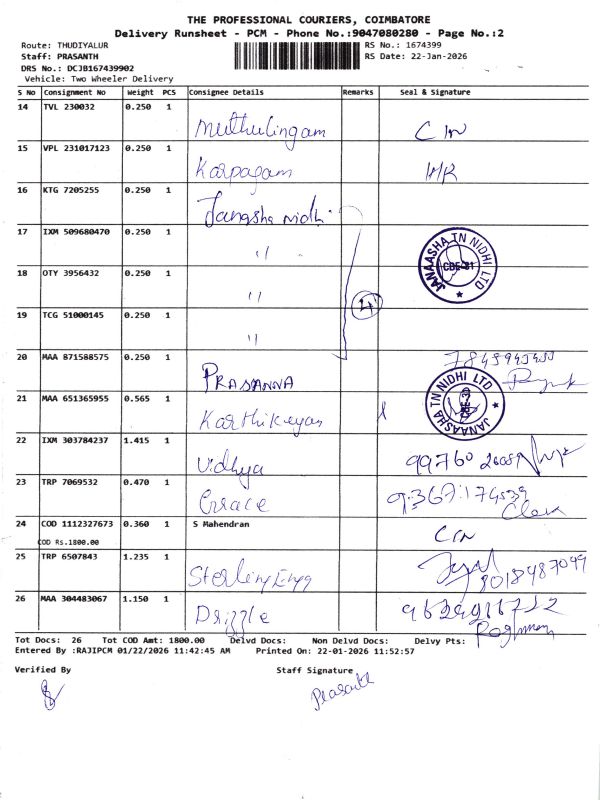 THE PROFESSIONAL COURIERS, COIMBATORE
Delivery Runsheet - PCM - Phone No.:9047080280 - Page No.:2
Route: THUDIYALUR RS No.: 1674399
Staff: PRASANTH RS Date: 22-Jan-2026
DRS No.: DCJB167439902
Vehicle: Two Wheeler Delivery
S No Consignment No Weight PCS Consignee Details Remarks Seal & Signature
14 TVL 230032 0.250 1
Muthulingam
15 VPL 231017123 0.250 1
Karpagam
16 KTG 7205255 0.250 1
Janaasha nidhi
17 IXM 509680470 0.250 1
"
JANAASHA TN NIDHI LTD
CBE-31
18 OTY 3956432 0.250 1
"
4
19 TCG 51000145 0.250 1
"
20 MAA 871588575 0.250 1
PRASANNA
21 MAA 651365955 0.565 1
Karthikeyan
JANAASHA TN NIDHI LTD
22 IXM 303784237 1.415 1
Vidhya 99760
23 TRP 7069532 0.470 1
Grace
24 COD 1112327673 0.360 1 S Mahendran
COD Rs.1800.00
25 TRP 6507843 1.235 1
Sterling Engg 8018487049
26 MAA 304483067 1.150 1
Drizzle
Tot Docs: 26 Tot COD Amt: 1800.00 Delvd Docs: Non Delvd Docs: Delvy Pts:
Entered By :RAJIPCM 01/22/2026 11:42:45 AM Printed On: 22-01-2026 11:52:57
Verified By Staff Signature
Prasanth